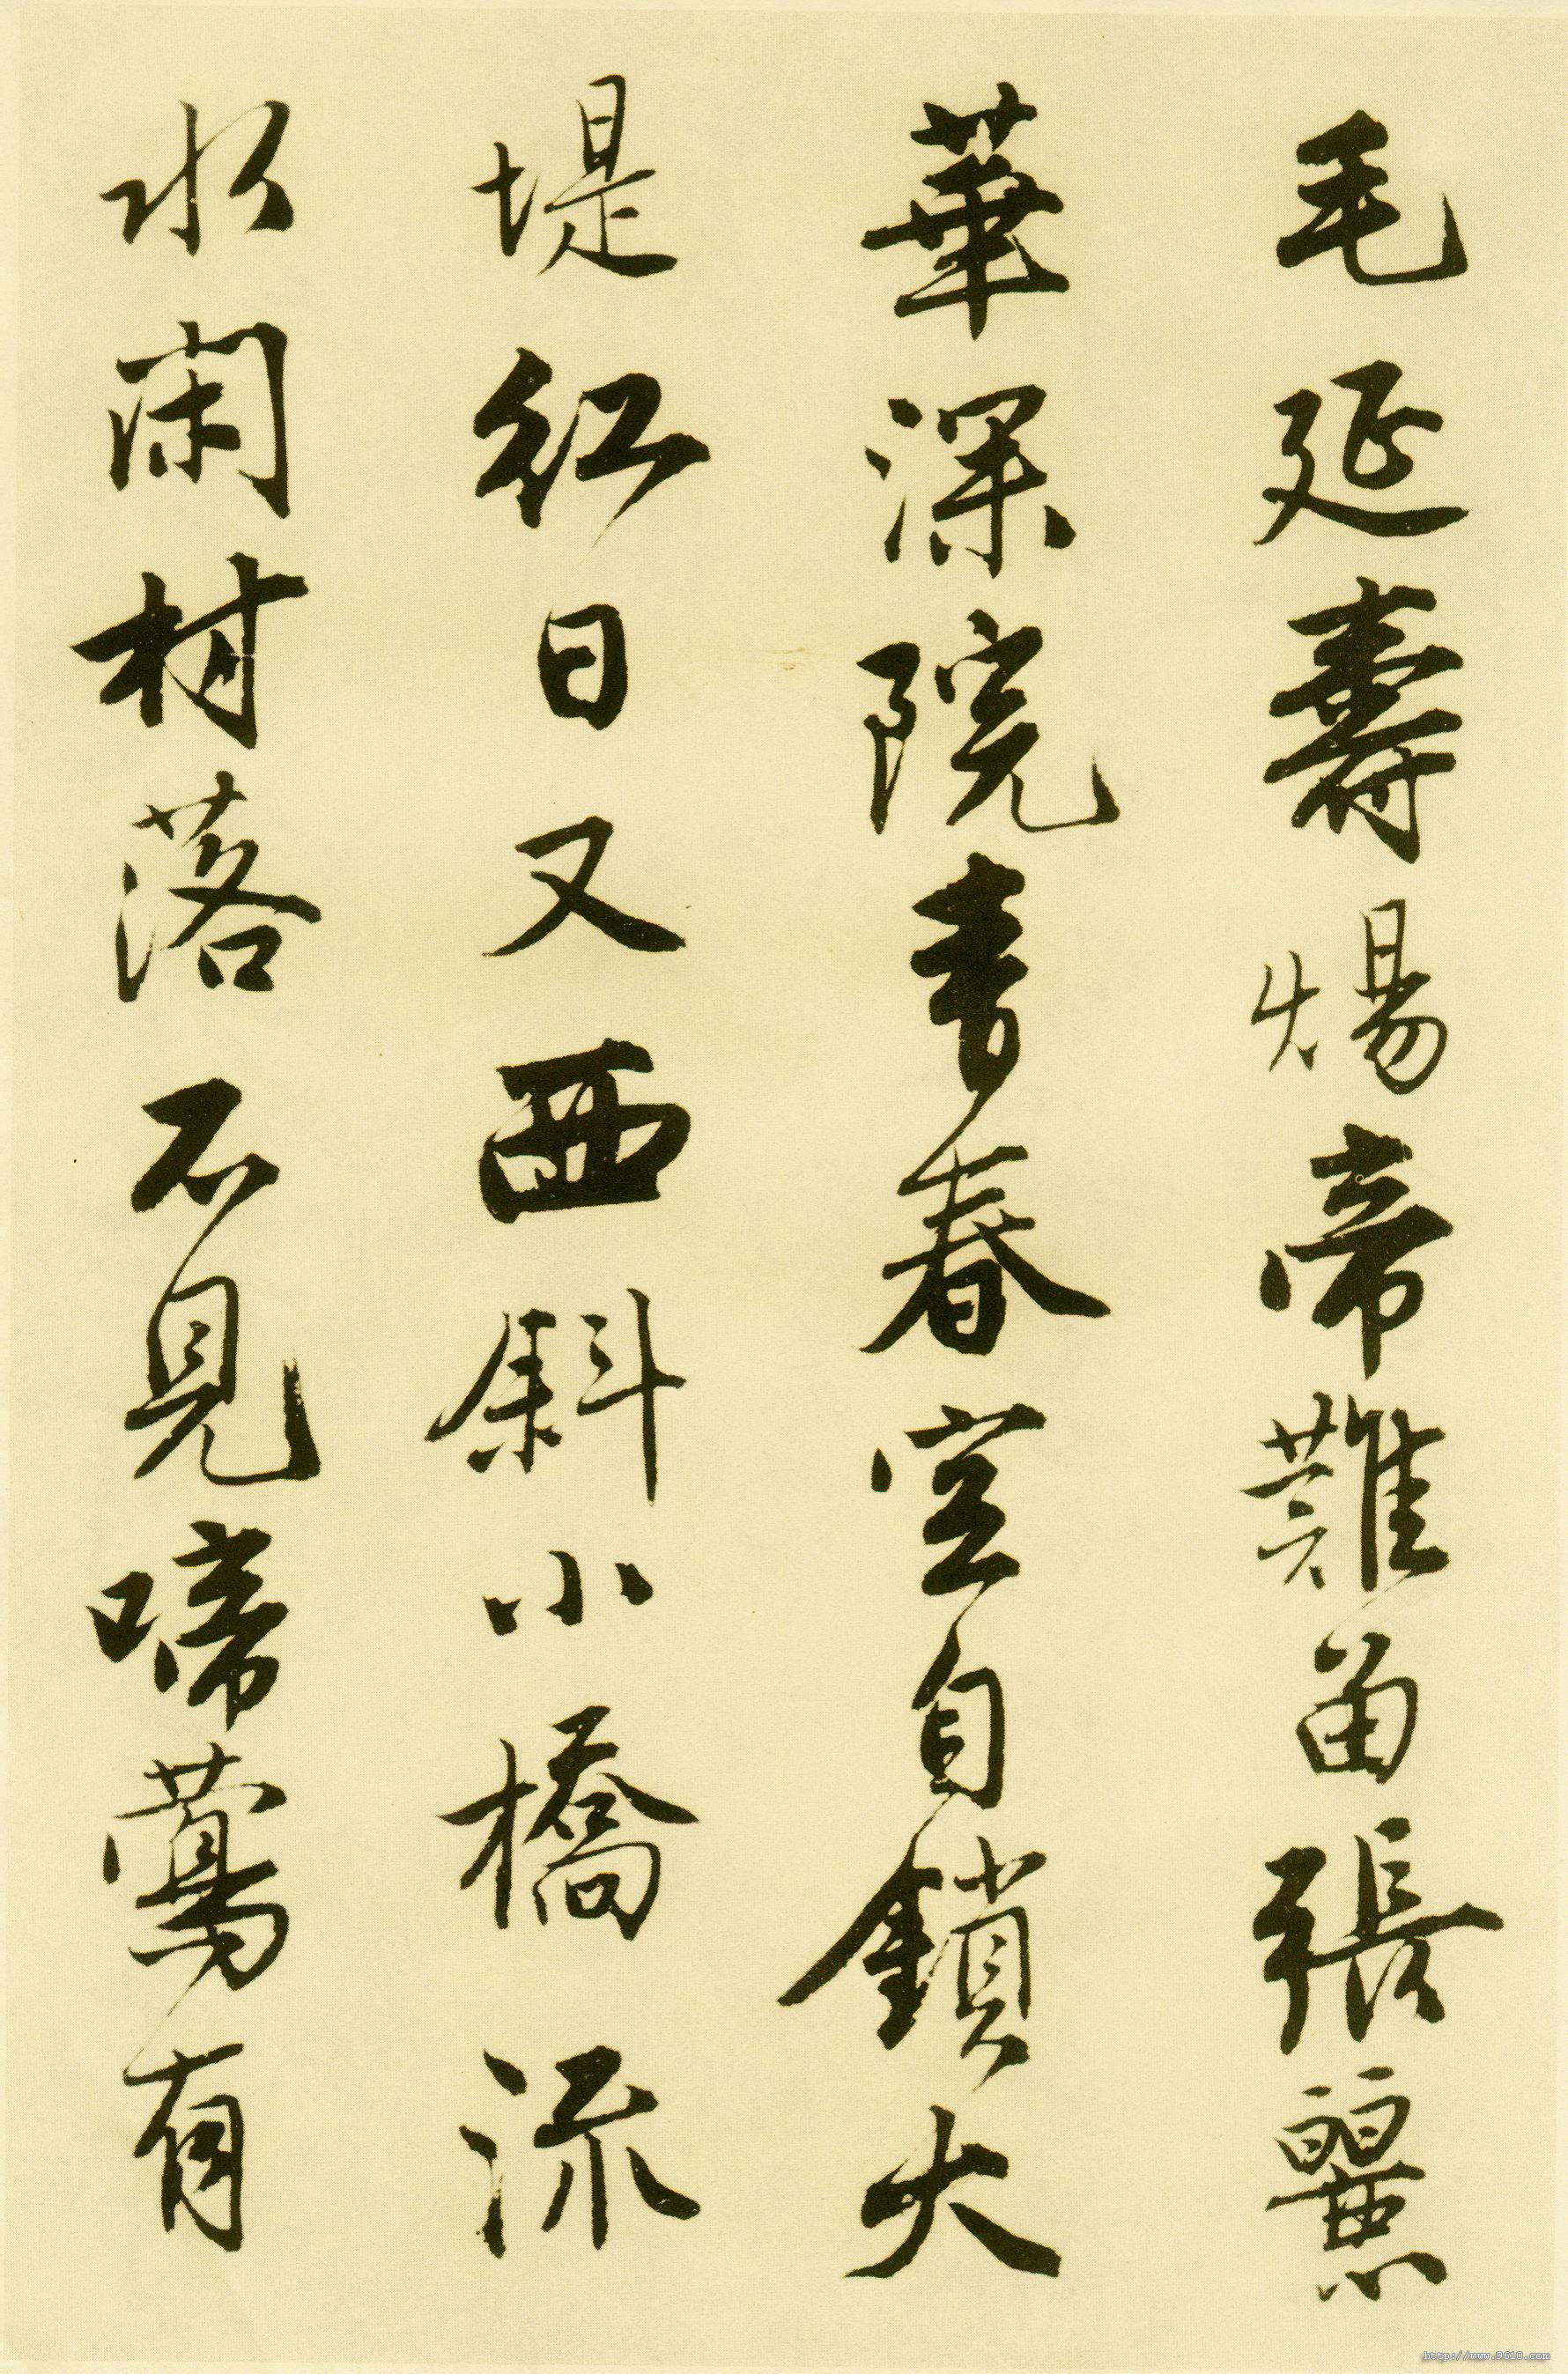 毛延壽煬帝難留張麗
華深院青春空自鎖大
堤紅日又西斜小橋流
水閑村落不見啼鶯有
http://www.9610.com